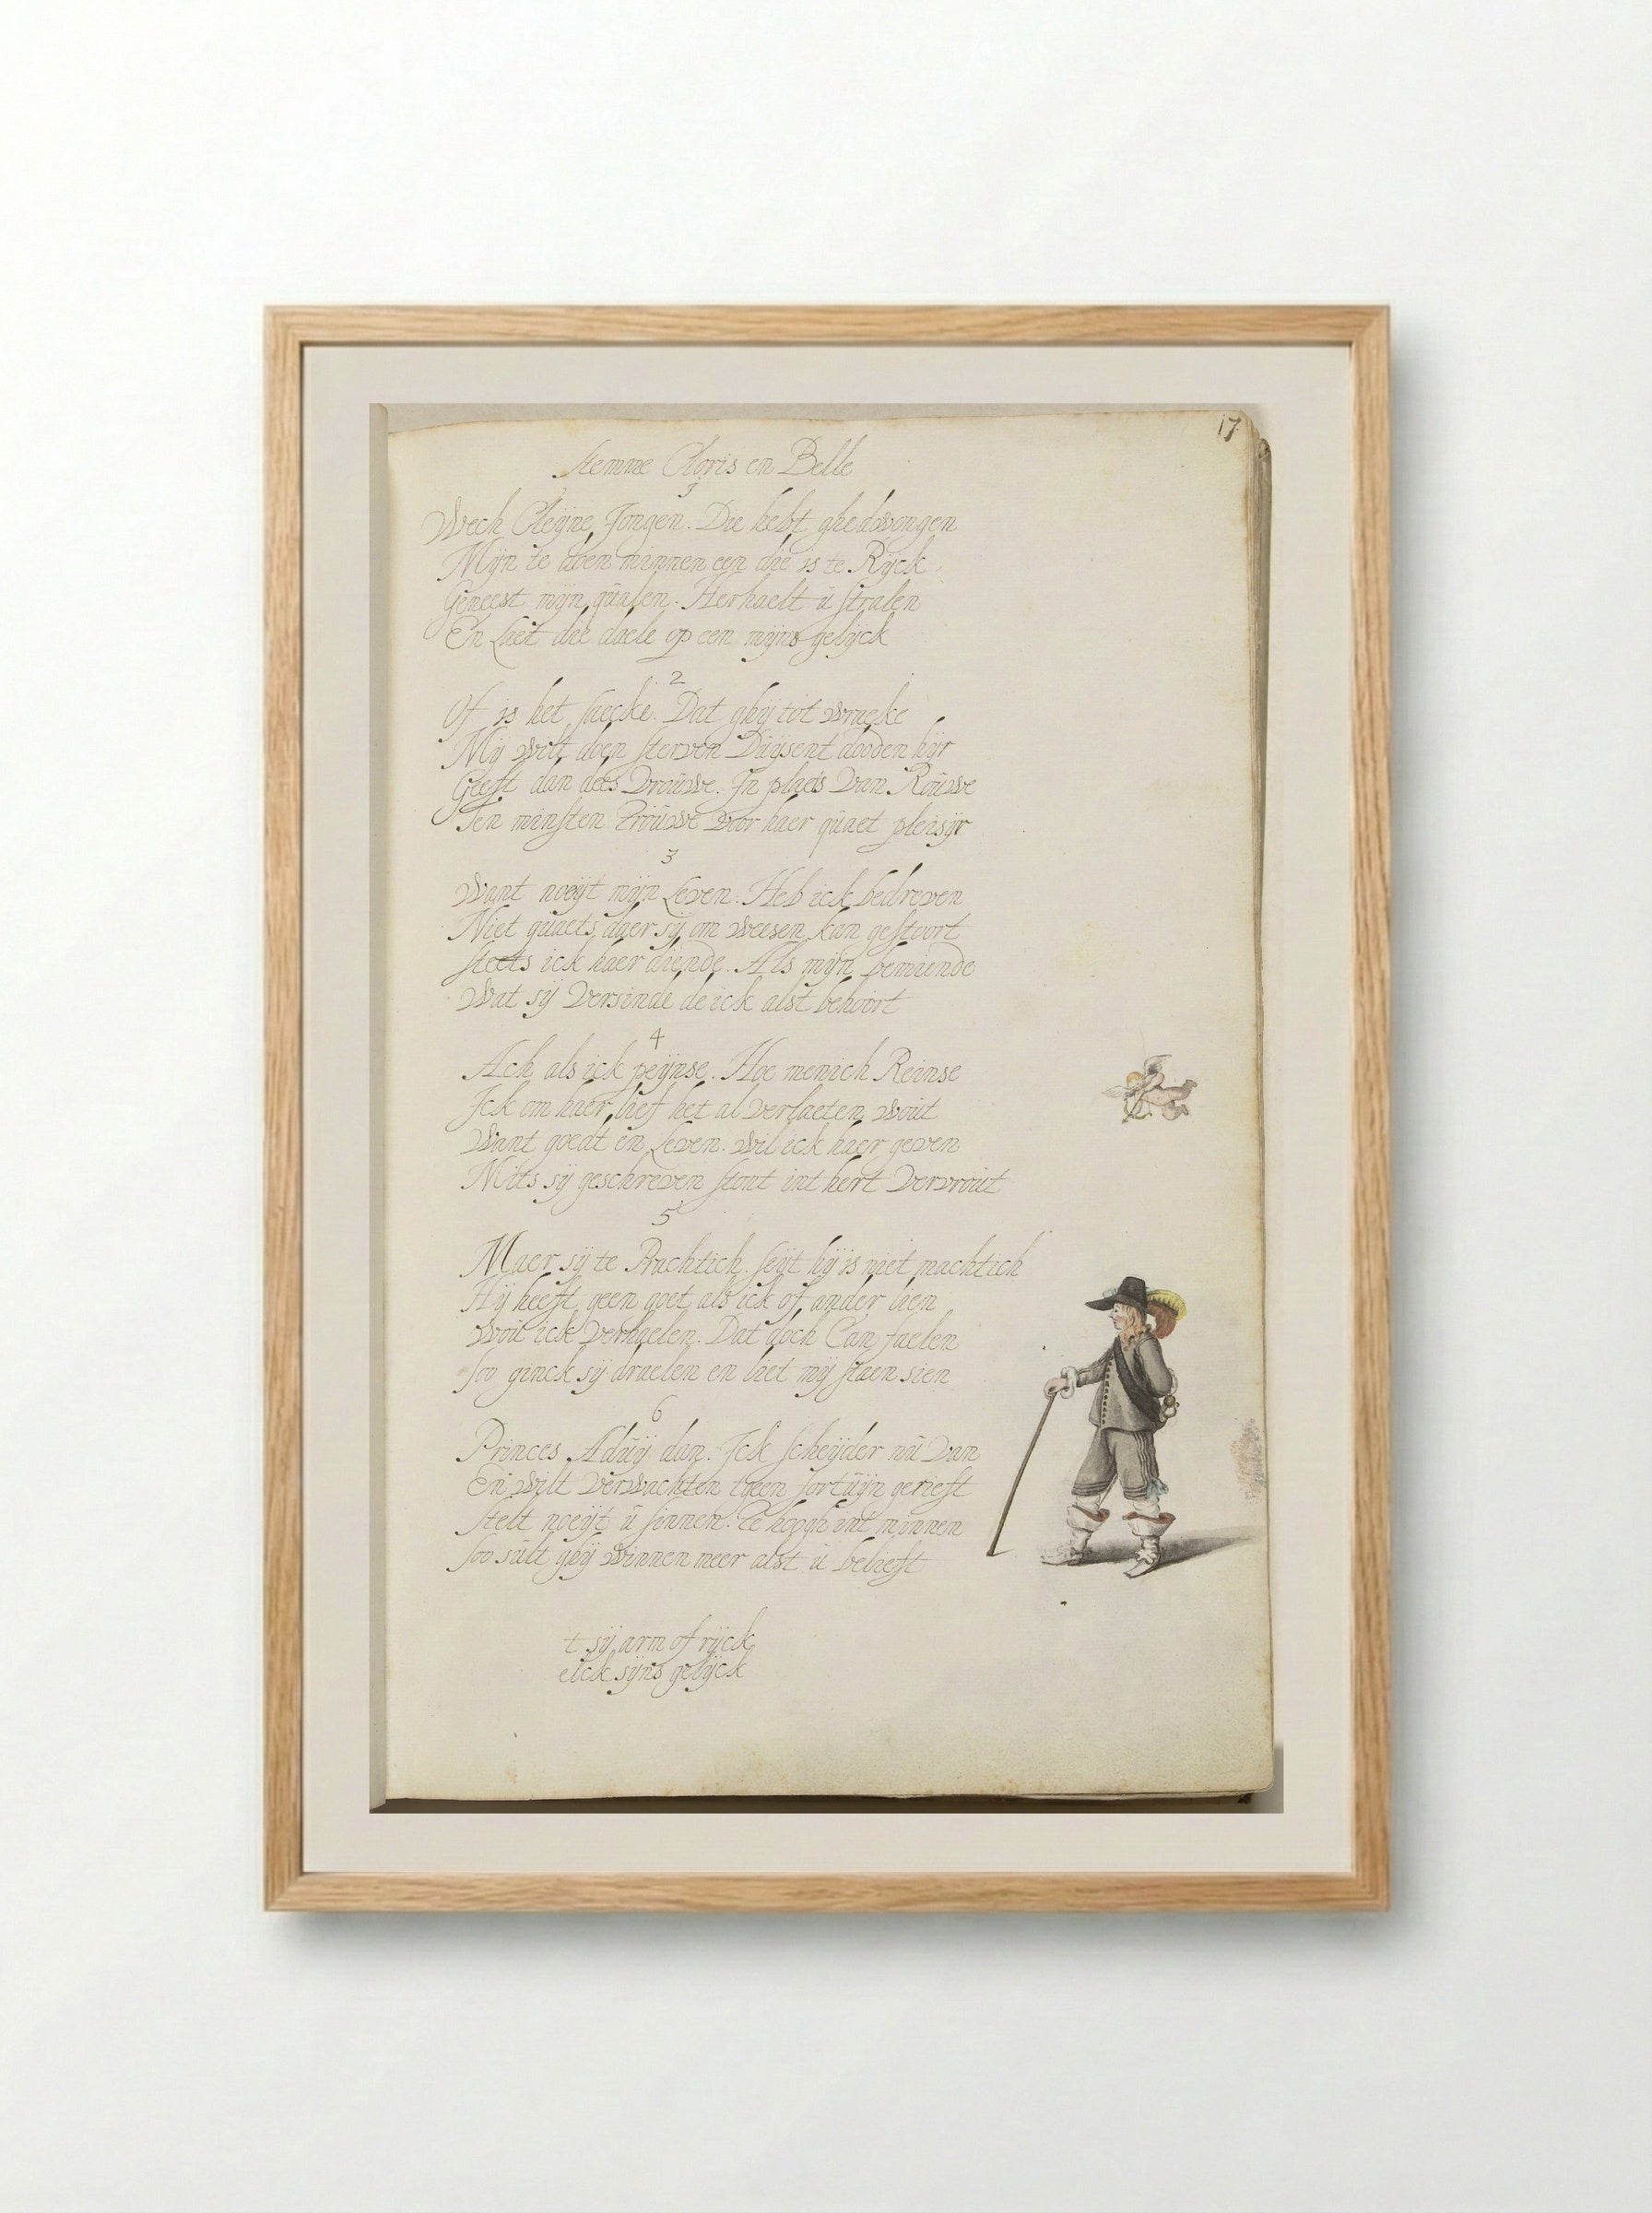 17
Stemme Cloris en Belle
Wech Cleijne Jongen. Die hebt ghedwongen
Mijn te doen minnen een die is te Rijck
Geneest mijn qualen. Herhaelt ü stralen
En Laet die daele op een mijns gelijck
2
Of is het saecke. Dat ghij tot wraeke
Mij wilt doen sterven Duijsent dooden hijr
Geeft dan dees Vrouwe. In plaets Van Rouwe
Ten minsten trouwe voor haer quaet pleisijr
3
Want noeijt mijn Leven. Heb ick bedreven
Niet quaets daer sij om weesen kan gestoort
steets ick haer diende. Als mijn beminde
Wat sij Versinde de ick alst behoort
4
Ach als ick peijnse. Hoe menich Reinse
Ick om haer lief het al verlaeten wout
Want goedt en Leven. wil ick haer geven
Mits sij geschreven stont int hert
5
Maer sij te Prachtich. seijt hij is niet machtich
Hij heeft geen goet als ick of ander lien
Wou ick Verhaelen. Dat doch Can faelen
soo ginck sij draelen en liet mij staen sien
6
Princes Aduij dan. Ick scheijder nü Van
En wilt Verwachten tgeen fortüijn gerieft
stelt noeijt ü sinnen. Te hoogh int minnen
soo sült ghij winnen meer alst ü belieft
t sij arm of rijck
elck sijns gelijck